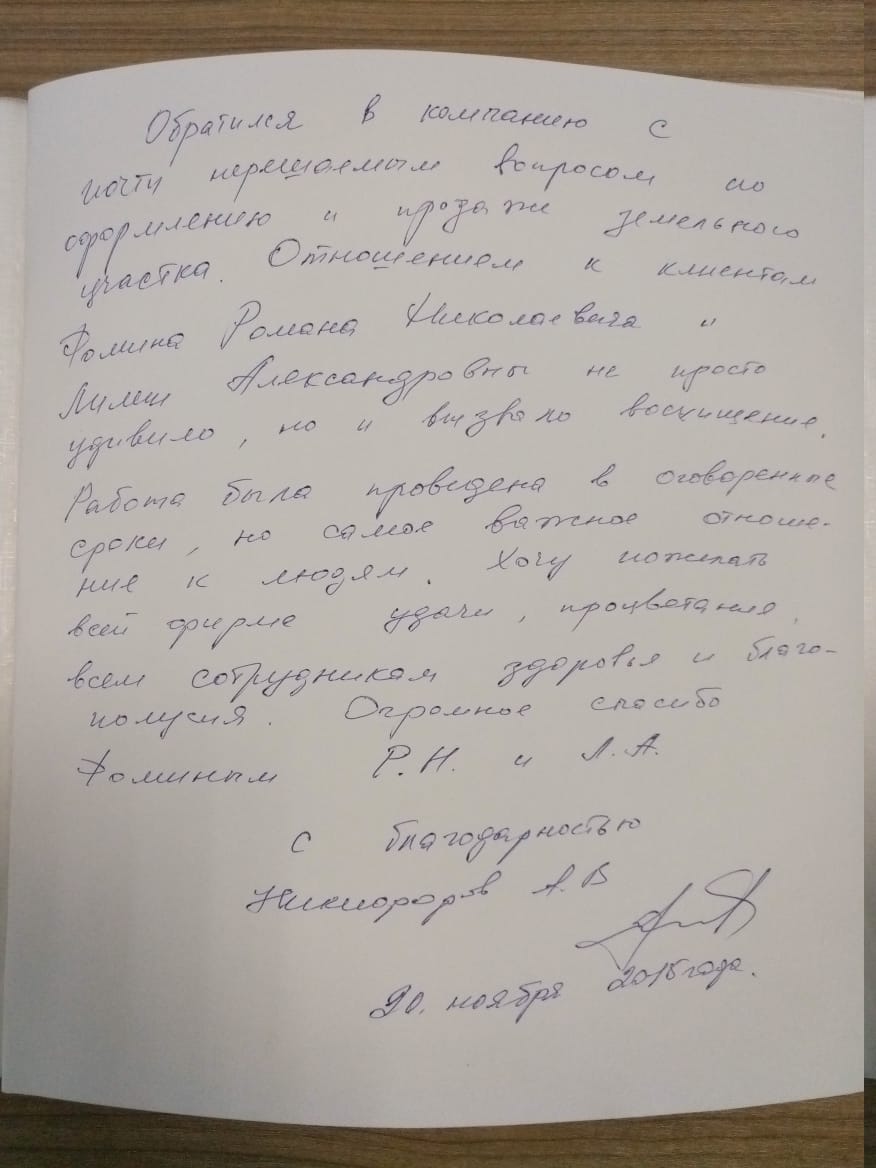 Обратился в компанию с
почти нерешаемым вопросом по
оформлению и продаже земельного
участка. Отношением к клиентам
Фомина Романа Николаевича и
Лилии Александровны не просто
удивило, но и вызвало восхищение.
Работа была проведена в оговоренные
сроки, но самое важное отноше-
ние к людям. Хочу пожелать
всей фирме удачи, процветания,
всем сотрудникам здоровья и благо-
получия. Огромное спасибо
Фоминым Р.Н. и Л.А.
С благодарностью
Никифоров А.В
20. ноября 2015 года.